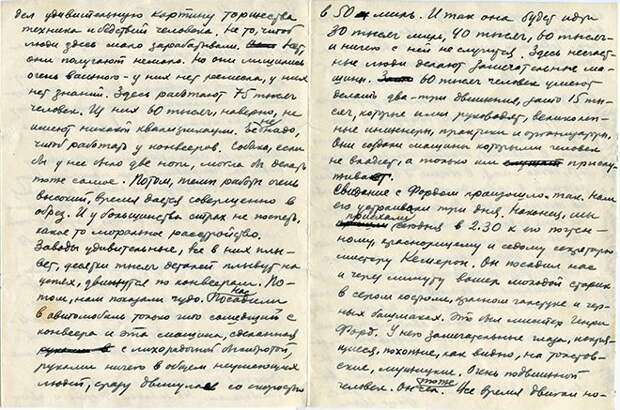 дел удивительную картину торжества
техники и бедствий человека. Не то, чтоб
люди здесь мало зарабатывали. Нет,
они получают немало. Но они лишились
очень важного – у них нет ремесла, у них
нет знаний. Здесь работают 75 тысяч
человек. Из них 60 тысяч, наверно, не
имеют никакой квалификации. Ее не надо,
чтоб работать у конвейеров. Собака, если
бы у нее было две ноги, могла бы делать
тоже самое. Потом, темп работы очень
высокий, время дается совершенно в
обрез. И у большинства
какое-то моральное расстройство.
Заводы удивительные, все в них плы-
вет, десятки тысяч деталей плывут на
цепях, движутся по конвейерам. По-
том, нам показали чудо. Нас посадили
в автомобиль только что сошедший с
конвейера и эта машина, сделанная
с лихорадочной быстротой,
руками ничего в общем не умеющих
людей, сразу двинулась со скоростью
в 50 миль. И так она будет идти
30 тысяч миль, 40 тысяч, 60 тысяч –
и ничего с ней не случится. Здесь несчаст-
ные люди делают замечательные ма-
шины. 60 тысяч человек умеют
делать два-три движения, зато 15 ты-
сяч, которые ими руководят, великолеп-
ные инженеры, практики и организаторы.
Они создали машины которыми человек
не владеет, а только им прислу-
живает.
Свидание с Фордом произошло так. Нам
его устраивали три дня. Наконец, мы
приехали сегодня в 2.30 к его почтен-
ному, краснолицему и седому секретарю
мистеру Кемерон. Он посадил нас
и через минуту вошел молодой старик
в сером костюме, красном галстуке и чер-
ных башмаках. Это был мистер Генри
Форд. У него замечательные глаза,
похожие, как видно, на толстов-
ские, мужицкие. Очень подвижной
человек. Он тоже сел. Все время двигал но-